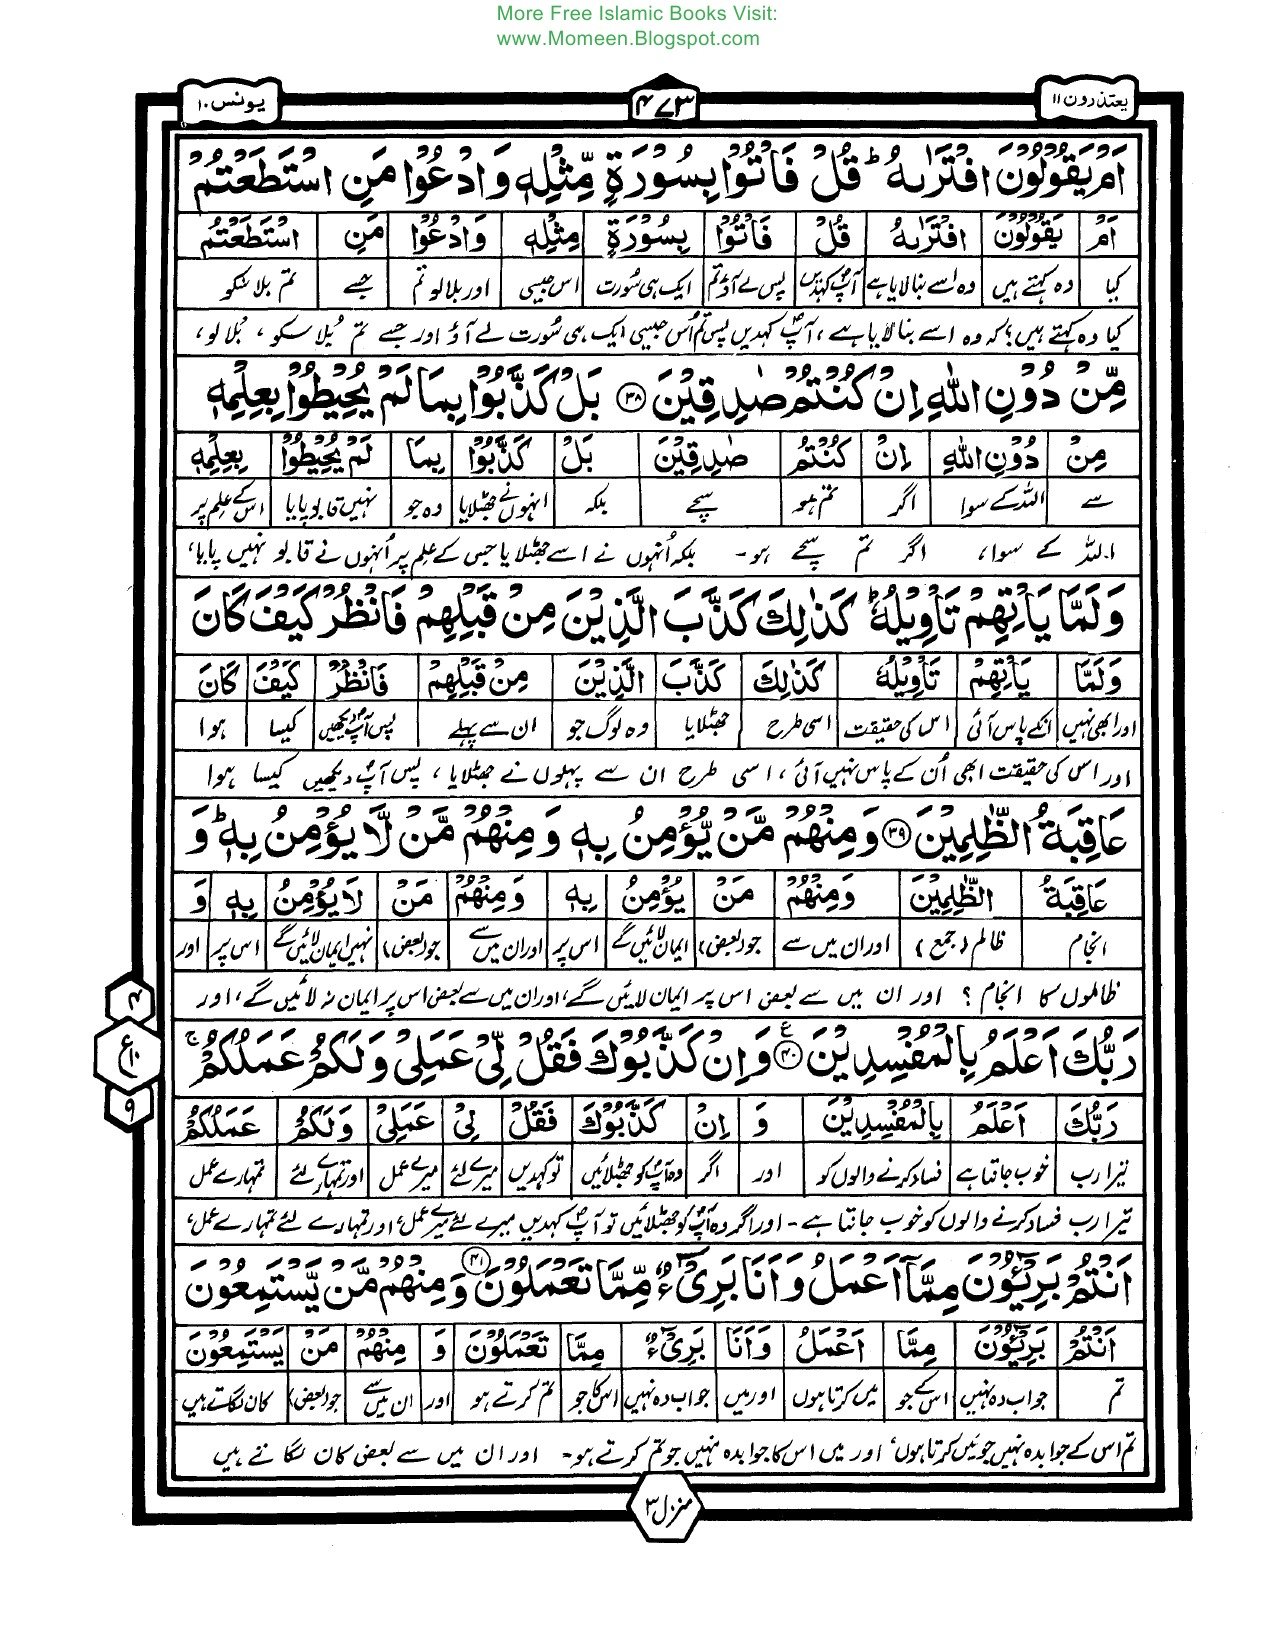 More Free Islamic Books Visit:
www.Momeen.Blogspot.com
یعتذرون ۱۱ ۴۷۳ یونس ۱۰
اَمْ يَقُوْلُوْنَ افْتَرٰىهُ ؕ قُلْ فَاْتُوْا بِسُوْرَةٍ مِّثْلِهٖ وَادْعُوْا مَنِ اسْتَطَعْتُمْ
اَمْ يَقُوْلُوْنَ افْتَرٰىهُ قُلْ فَاْتُوْا بِسُوْرَةٍ مِثْلِهٖ وَادْعُوْا مَنِ اسْتَطَعْتُمْ
کیا وہ کہتے ہیں وہ اسے بنا لایا ہے آپؐ کہدیں پس لے آؤ تم ایک ہی سُورت اس جیسی اور بلا لو تم جسے تم بلا سکو
کیا وہ کہتے ہیں؟ کہ وہ اسے بنا لایا ہے، آپؐ کہدیں پس تم اُس جیسی ایک ہی سُورت لے آؤ اور جسے تم بُلا سکو، بُلا لو،
مِّنْ دُوْنِ اللّٰهِ اِنْ كُنْتُمْ صٰدِقِيْنَ ۳۸ بَلْ كَذَّبُوْا بِمَا لَمْ يُحِيْطُوْا بِعِلْمِهٖ
مِنْ دُوْنِ اللّٰهِ اِنْ كُنْتُمْ صٰدِقِيْنَ بَلْ كَذَّبُوْا بِمَا لَمْ يُحِيْطُوْا بِعِلْمِهٖ
سے اللہ کے سوا اگر تم ہو سچے بلکہ انہوں نے جھٹلایا وہ جو نہیں قابو پایا اس کے علم پر
اللہ کے سوا، اگر تم سچے ہو۔ بلکہ اُنہوں نے اسے جھٹلایا جس کے علم پر اُنہوں نے قابو نہیں پایا،
وَلَمَّا يَاْتِهِمْ تَاْوِيْلُهٗ ؕ كَذٰلِكَ كَذَّبَ الَّذِيْنَ مِنْ قَبْلِهِمْ فَانْظُرْ كَيْفَ كَانَ
وَلَمَّا يَاْتِهِمْ تَاْوِيْلُهٗ كَذٰلِكَ كَذَّبَ الَّذِيْنَ مِنْ قَبْلِهِمْ فَانْظُرْ كَيْفَ كَانَ
اور ابھی نہیں انکے پاس آئی اس کی حقیقت اسی طرح جھٹلایا وہ لوگ جو ان سے پہلے پس آپؐ دیکھیں کیسا ہوا
اور اس کی حقیقت ابھی اُن کے پاس نہیں آئی، اسی طرح ان سے پہلوں نے جھٹلایا، پس آپؐ دیکھیں کیسا ہوا
عَاقِبَةُ الظّٰلِمِيْنَ ۳۹ وَمِنْهُمْ مَّنْ يُّؤْمِنُ بِهٖ وَمِنْهُمْ مَّنْ لَّا يُؤْمِنُ بِهٖ ؕ وَ
عَاقِبَةُ الظّٰلِمِيْنَ وَمِنْهُمْ مَنْ يُؤْمِنُ بِهٖ وَمِنْهُمْ مَنْ لَا يُؤْمِنُ بِهٖ وَ
انجام ظالم (جمع) اور ان میں سے جو (بعض) ایمان لائیں گے اس پر اور ان میں سے جو (بعض) نہیں ایمان لائیں گے اس پر اور
ظالموں کا انجام؟ اور ان میں سے بعض اس پر ایمان لائیں گے، اور ان میں سے بعض اس پر ایمان نہ لائیں گے، اور
۴ ع۱۰ ۹
رَبُّكَ اَعْلَمُ بِالْمُفْسِدِيْنَ ۴۰ ع وَاِنْ كَذَّبُوْكَ فَقُلْ لِّيْ عَمَلِيْ وَلَكُمْ عَمَلُكُمْ ۚ
رَبُّكَ اَعْلَمُ بِالْمُفْسِدِيْنَ وَ اِنْ كَذَّبُوْكَ فَقُلْ لِيْ عَمَلِيْ وَلَكُمْ عَمَلُكُمْ
تیرا رب خوب جانتا ہے فساد کرنے والوں کو اور اگر وہ آپؐ کو جھٹلائیں تو کہدیں میرے لئے میرے عمل اور تمہارے لئے تمہارے عمل
تیرا رب فساد کرنے والوں کو خوب جانتا ہے۔ اور اگر وہ آپؐ کو جھٹلائیں تو آپؐ کہدیں میرے لئے میرے عمل، اور تمہارے لئے تمہارے عمل،
اَنْتُمْ بَرِيْٓـُٔوْنَ مِمَّاۤ اَعْمَلُ وَاَنَا بَرِیْٓءٌ مِّمَّا تَعْمَلُوْنَ ۴۱ وَمِنْهُمْ مَّنْ يَّسْتَمِعُوْنَ
اَنْتُمْ بَرِيْٓـُٔوْنَ مِمَّا اَعْمَلُ وَاَنَا بَرِیْٓءٌ مِمَّا تَعْمَلُوْنَ وَ مِنْهُمْ مَنْ يَسْتَمِعُوْنَ
تم جواب دہ نہیں اس کے جو میں کرتا ہوں اور میں جواب دہ نہیں اس کا جو تم کرتے ہو اور ان میں سے جو (بعض) کان لگاتے ہیں
تم اس کے جوابدہ نہیں جو میں کرتا ہوں، اور میں اس کا جوابدہ نہیں جو تم کرتے ہو۔ اور ان میں سے بعض کان لگاتے ہیں
منزل ۳